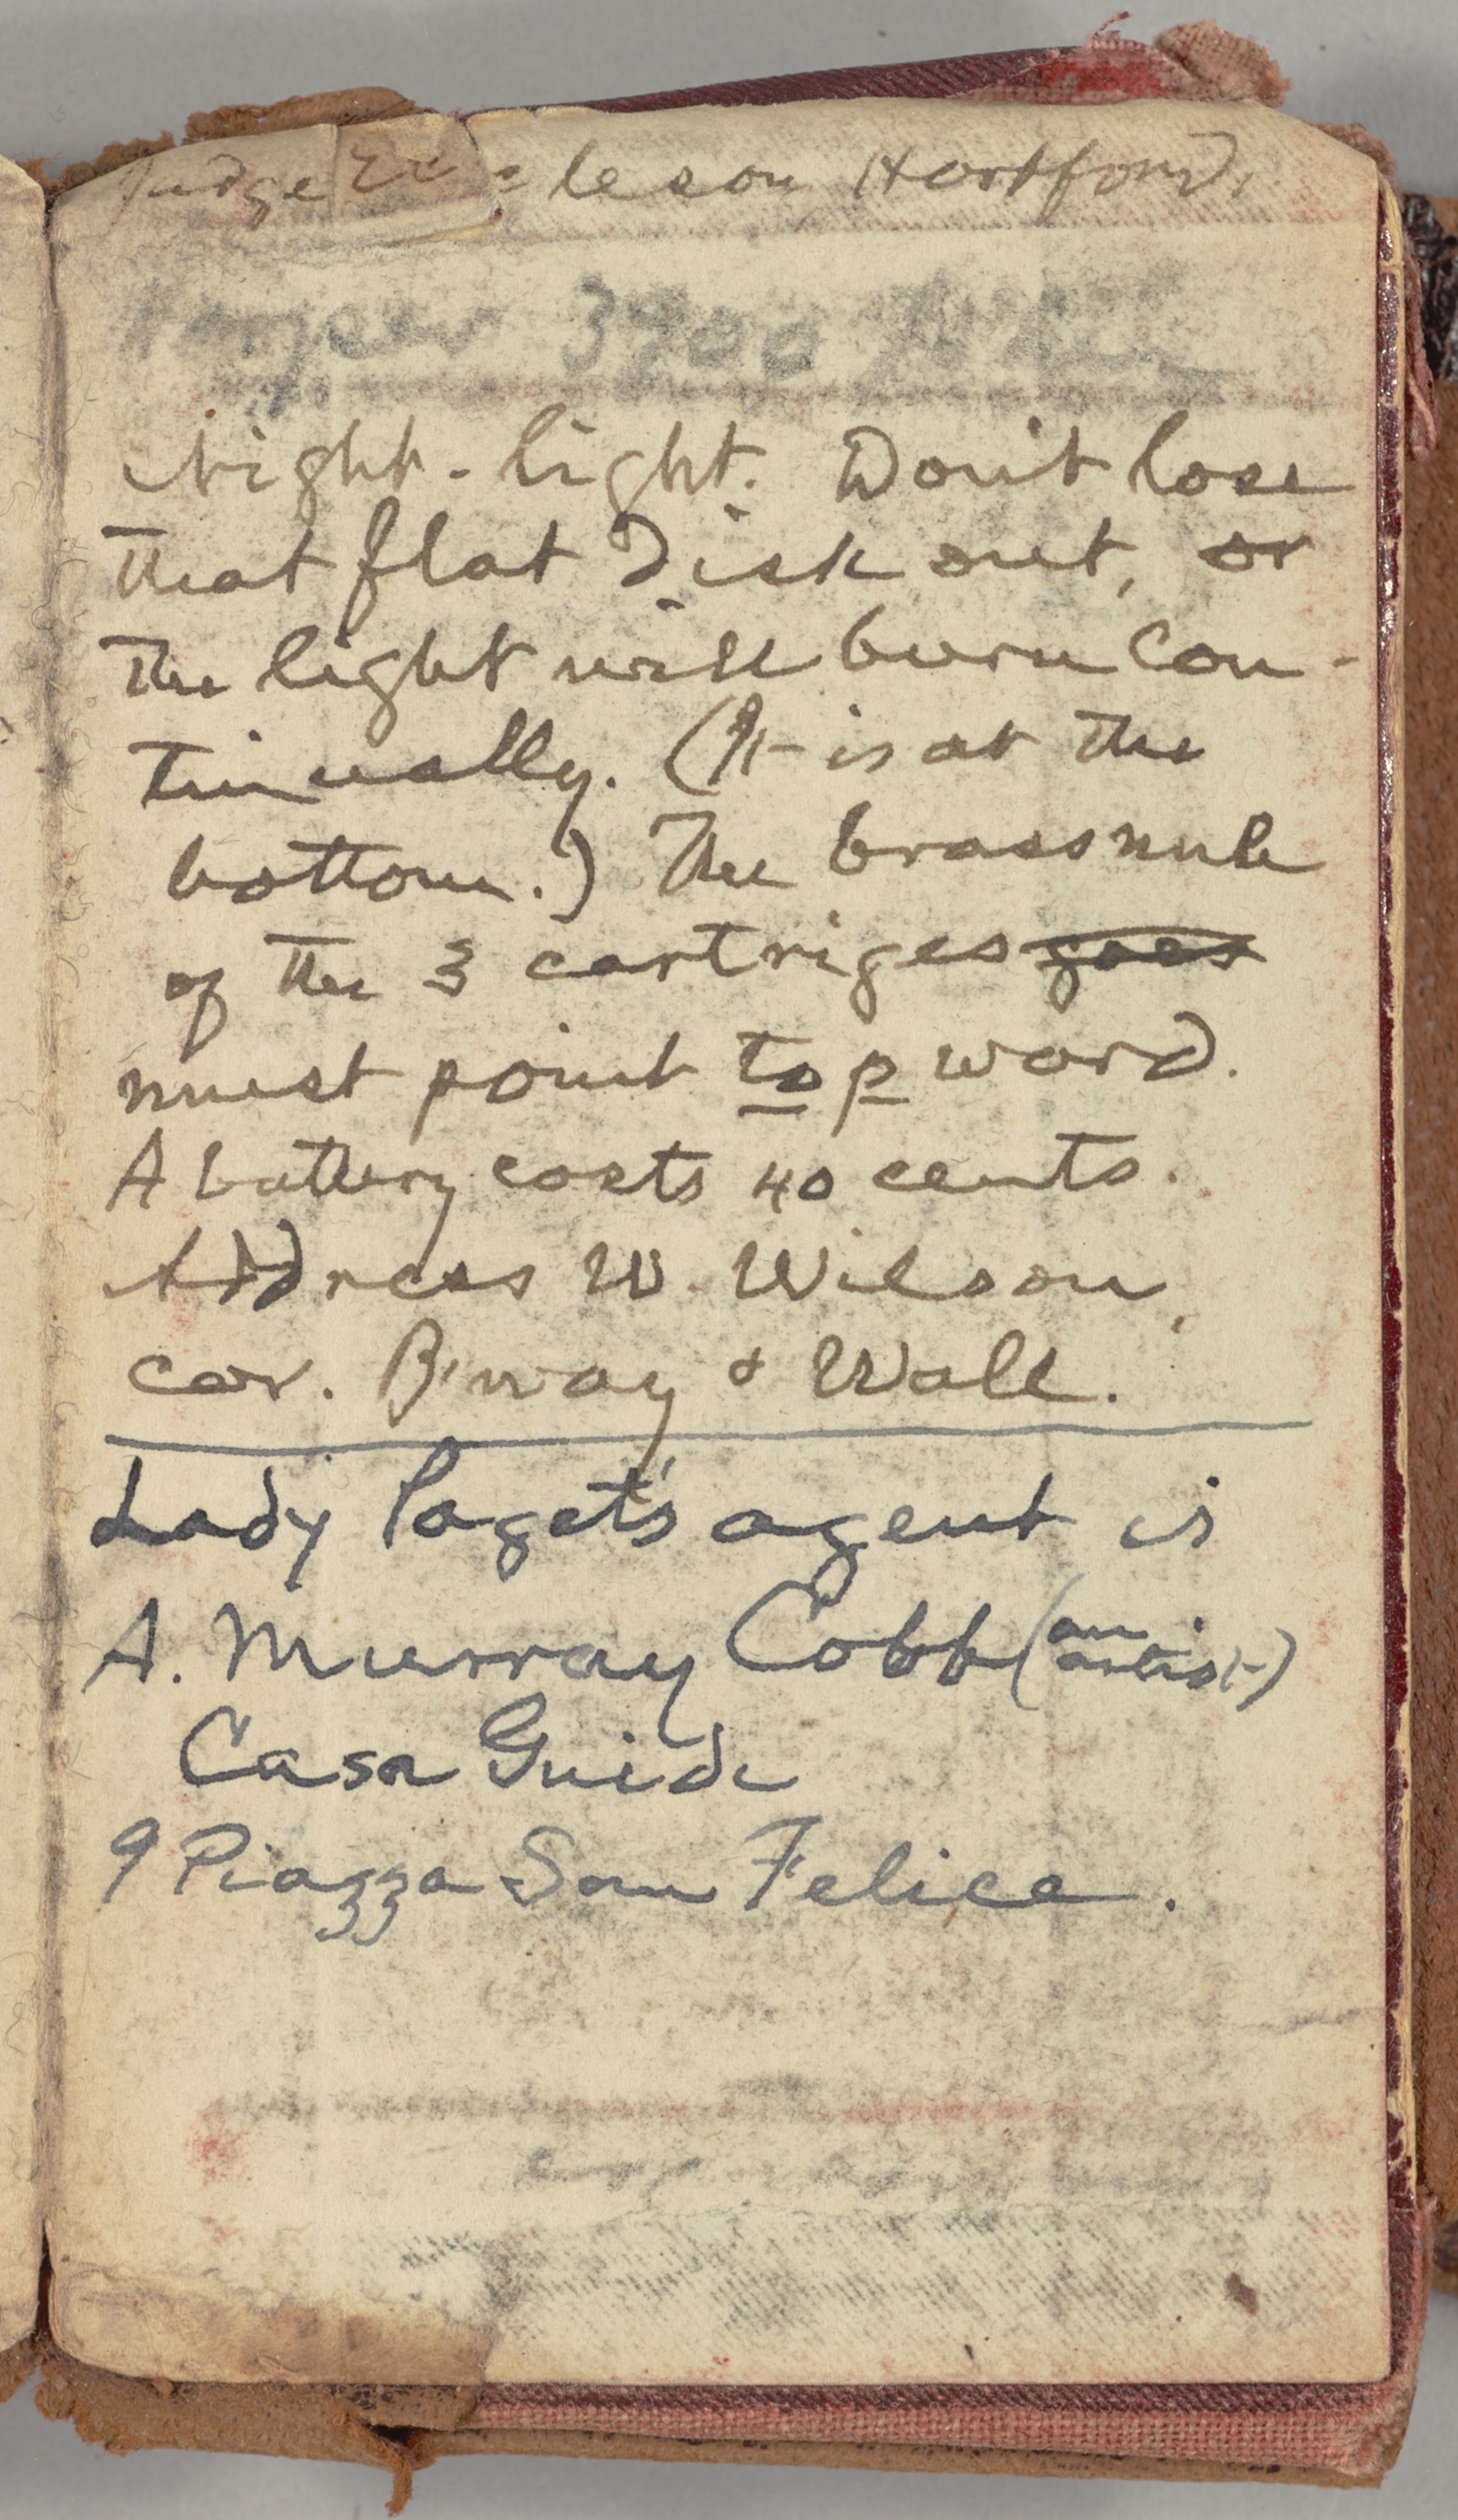 Judge Hartford,
3700
Night-light. Don't lose
that flat disk out, or
the light will burn con-
tinually. (It is at the
bottom.) The brass nub
of the 3 cartriges goes
must point top ward.
A battery costs 40 cents.
Address W. Wilson,
cor. B'way & Wall.
Lady Paget's agent is
A. Murray Cobb (an artist)
Casa Guidi
9 Piazza San Felice.